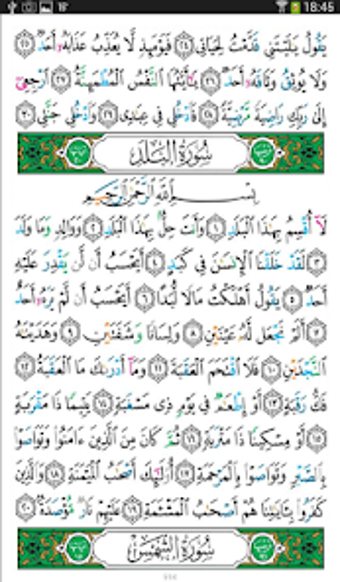 18:45
يَقُولُ يَٰلَيْتَنِى قَدَّمْتُ لِحَيَاتِى ﴿٢٤﴾ فَيَوْمَئِذٍ لَّا يُعَذِّبُ عَذَابَهُۥٓ أَحَدٌ ﴿٢٥﴾
وَلَا يُوثِقُ وَثَاقَهُۥٓ أَحَدٌ ﴿٢٦﴾ يَٰٓأَيَّتُهَا ٱلنَّفْسُ ٱلْمُطْمَئِنَّةُ ﴿٢٧﴾ ٱرْجِعِىٓ
إِلَىٰ رَبِّكِ رَاضِيَةً مَّرْضِيَّةً ﴿٢٨﴾ فَٱدْخُلِى فِى عِبَٰدِى ﴿٢٩﴾ وَٱدْخُلِى جَنَّتِى ﴿٣٠﴾
سُورَةُ البَلَدِ
بِسْمِ ٱللَّهِ ٱلرَّحْمَٰنِ ٱلرَّحِيمِ
لَآ أُقْسِمُ بِهَٰذَا ٱلْبَلَدِ ﴿١﴾ وَأَنتَ حِلٌّۢ بِهَٰذَا ٱلْبَلَدِ ﴿٢﴾ وَوَالِدٍ وَمَا وَلَدَ
﴿٣﴾ لَقَدْ خَلَقْنَا ٱلْإِنسَٰنَ فِى كَبَدٍ ﴿٤﴾ أَيَحْسَبُ أَن لَّن يَقْدِرَ عَلَيْهِ
أَحَدٌ ﴿٥﴾ يَقُولُ أَهْلَكْتُ مَالًا لُّبَدًا ﴿٦﴾ أَيَحْسَبُ أَن لَّمْ يَرَهُۥٓ أَحَدٌ
﴿٧﴾ أَلَمْ نَجْعَل لَّهُۥ عَيْنَيْنِ ﴿٨﴾ وَلِسَانًا وَشَفَتَيْنِ ﴿٩﴾ وَهَدَيْنَٰهُ
ٱلنَّجْدَيْنِ ﴿١٠﴾ فَلَا ٱقْتَحَمَ ٱلْعَقَبَةَ ﴿١١﴾ وَمَآ أَدْرَىٰكَ مَا ٱلْعَقَبَةُ ﴿١٢﴾
فَكُّ رَقَبَةٍ ﴿١٣﴾ أَوْ إِطْعَٰمٌ فِى يَوْمٍ ذِى مَسْغَبَةٍ ﴿١٤﴾ يَتِيمًا ذَا مَقْرَبَةٍ
﴿١٥﴾ أَوْ مِسْكِينًا ذَا مَتْرَبَةٍ ﴿١٦﴾ ثُمَّ كَانَ مِنَ ٱلَّذِينَ ءَامَنُوا۟ وَتَوَاصَوْا۟
بِٱلصَّبْرِ وَتَوَاصَوْا۟ بِٱلْمَرْحَمَةِ ﴿١٧﴾ أُو۟لَٰٓئِكَ أَصْحَٰبُ ٱلْمَيْمَنَةِ ﴿١٨﴾ وَٱلَّذِينَ
كَفَرُوا۟ بِـَٔايَٰتِنَا هُمْ أَصْحَٰبُ ٱلْمَشْـَٔمَةِ ﴿١٩﴾ عَلَيْهِمْ نَارٌ مُّؤْصَدَةٌۢ ﴿٢٠﴾
سُورَةُ الشَّمْسِ